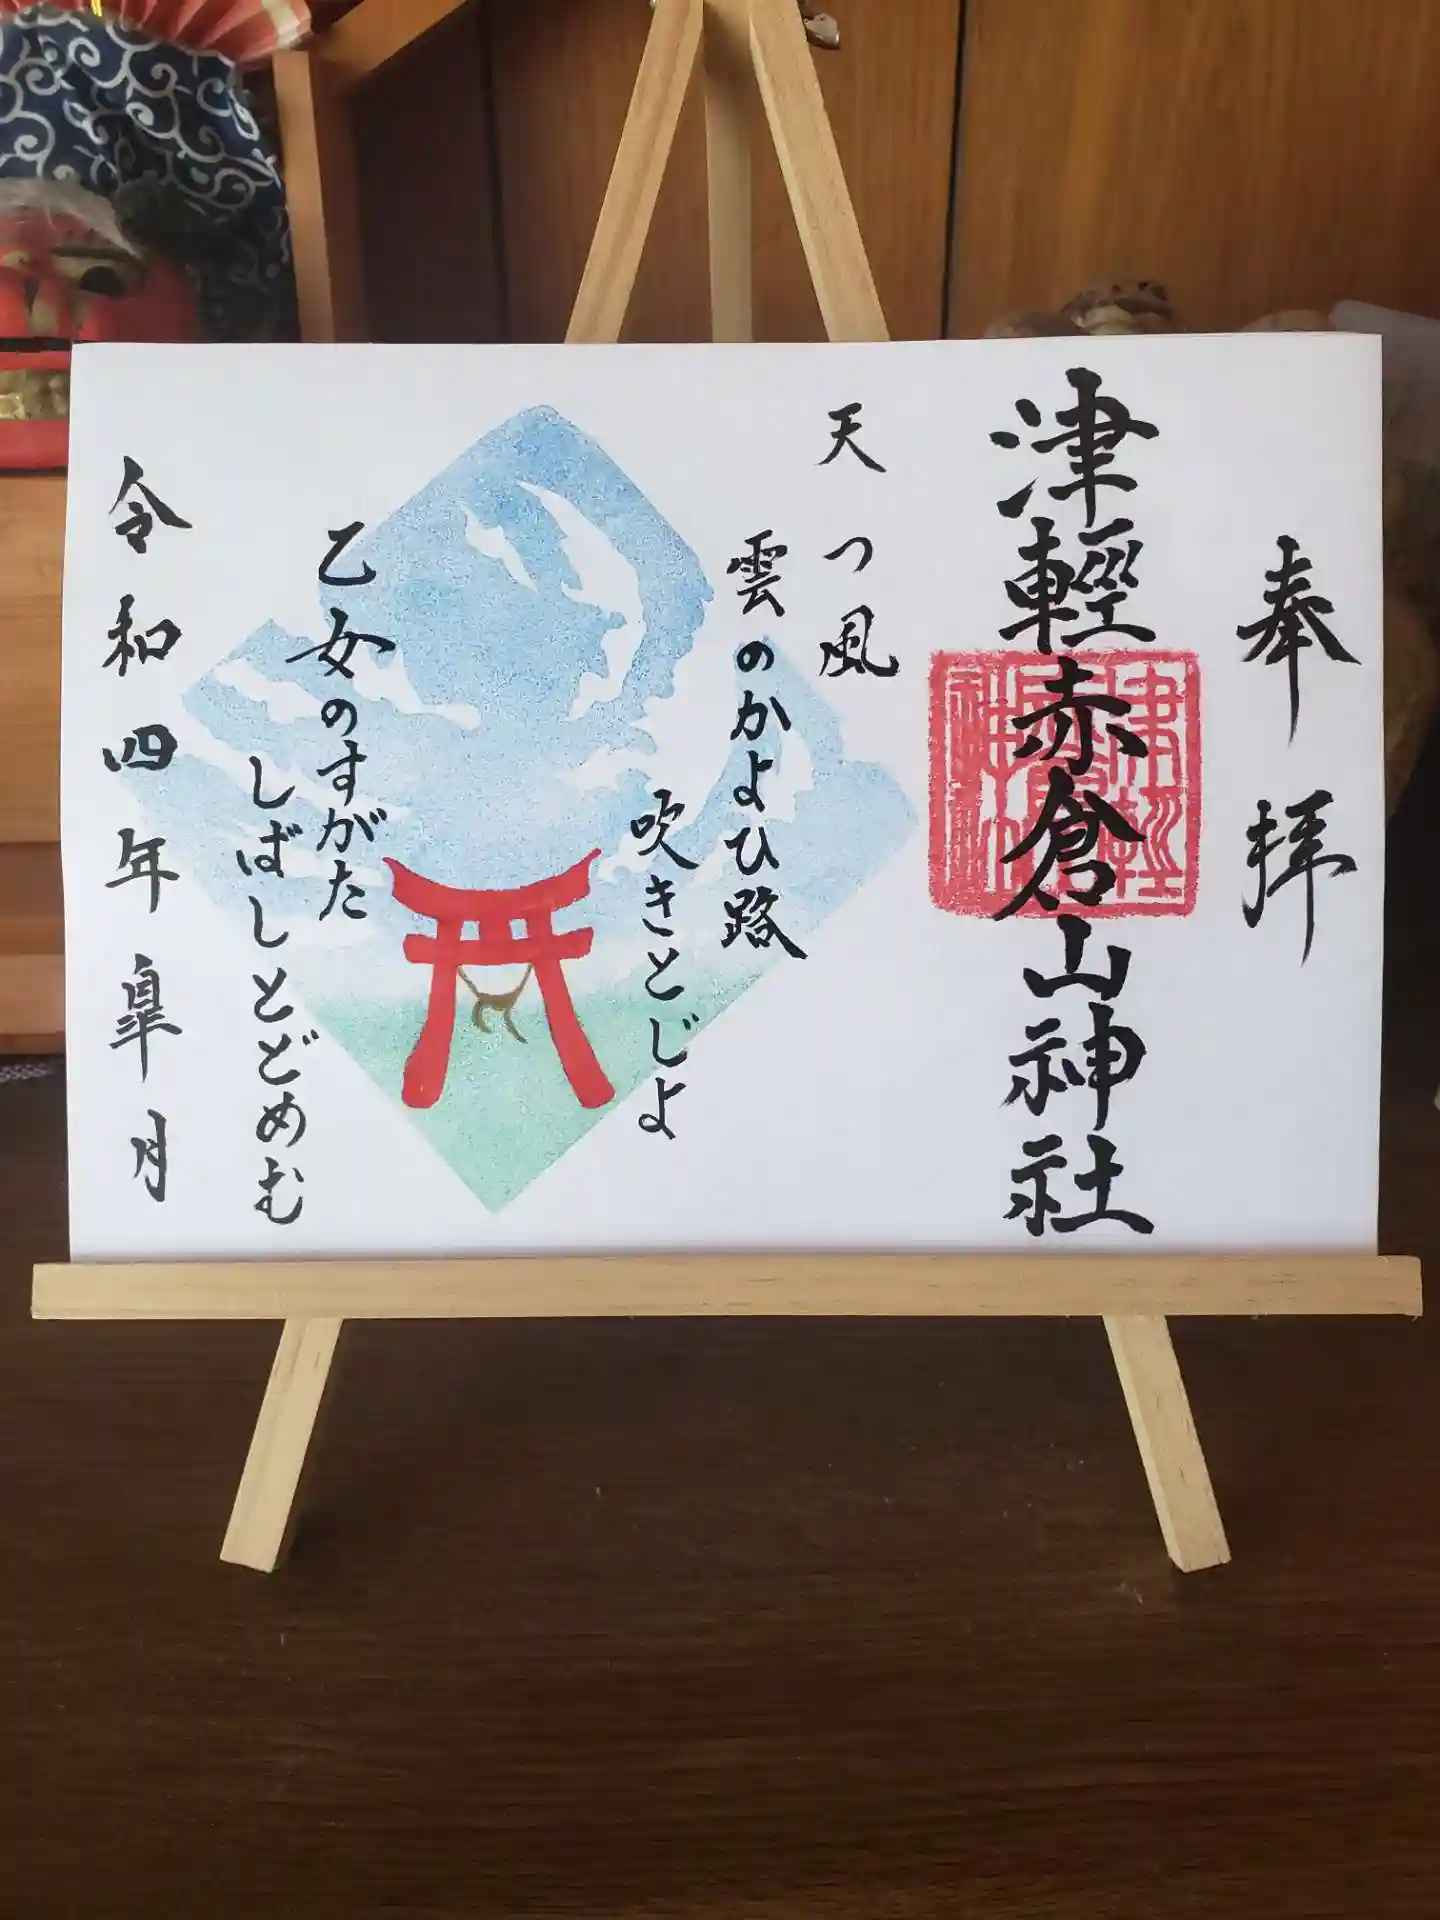 奉拝
津輕赤倉山神社
天つ風
雲のかよひ路
吹きとじよ
乙女のすがた
しばしとどめむ
令和四年皐月